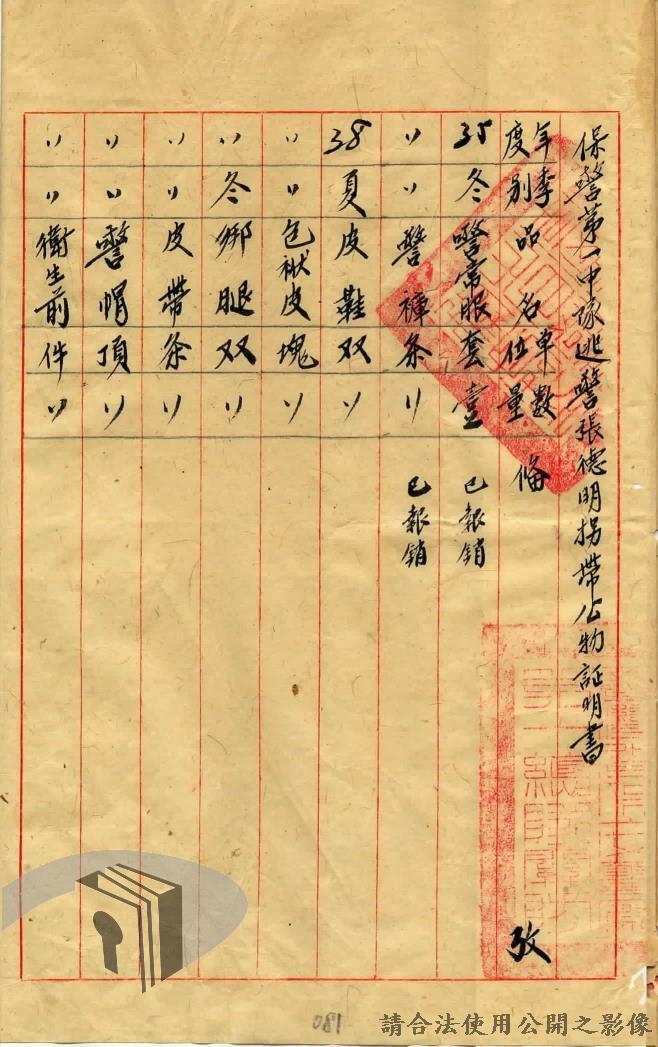 保警第一中隊逃警張德明拐帶公物証明書
年度 季別 品名 單位 數量 備 攷
35 冬 警常服 套 壹 已報銷
〃 〃 警褲 条 〃 已報銷
38 夏 皮鞋 双 〃
〃 〃 包袱皮 塊 〃
〃 冬 綁腿 双 〃
〃 〃 皮帶 条 〃
〃 〃 警帽 頂 〃
〃 〃 衛生 前 件 〃
180
請合法使用公開之影像